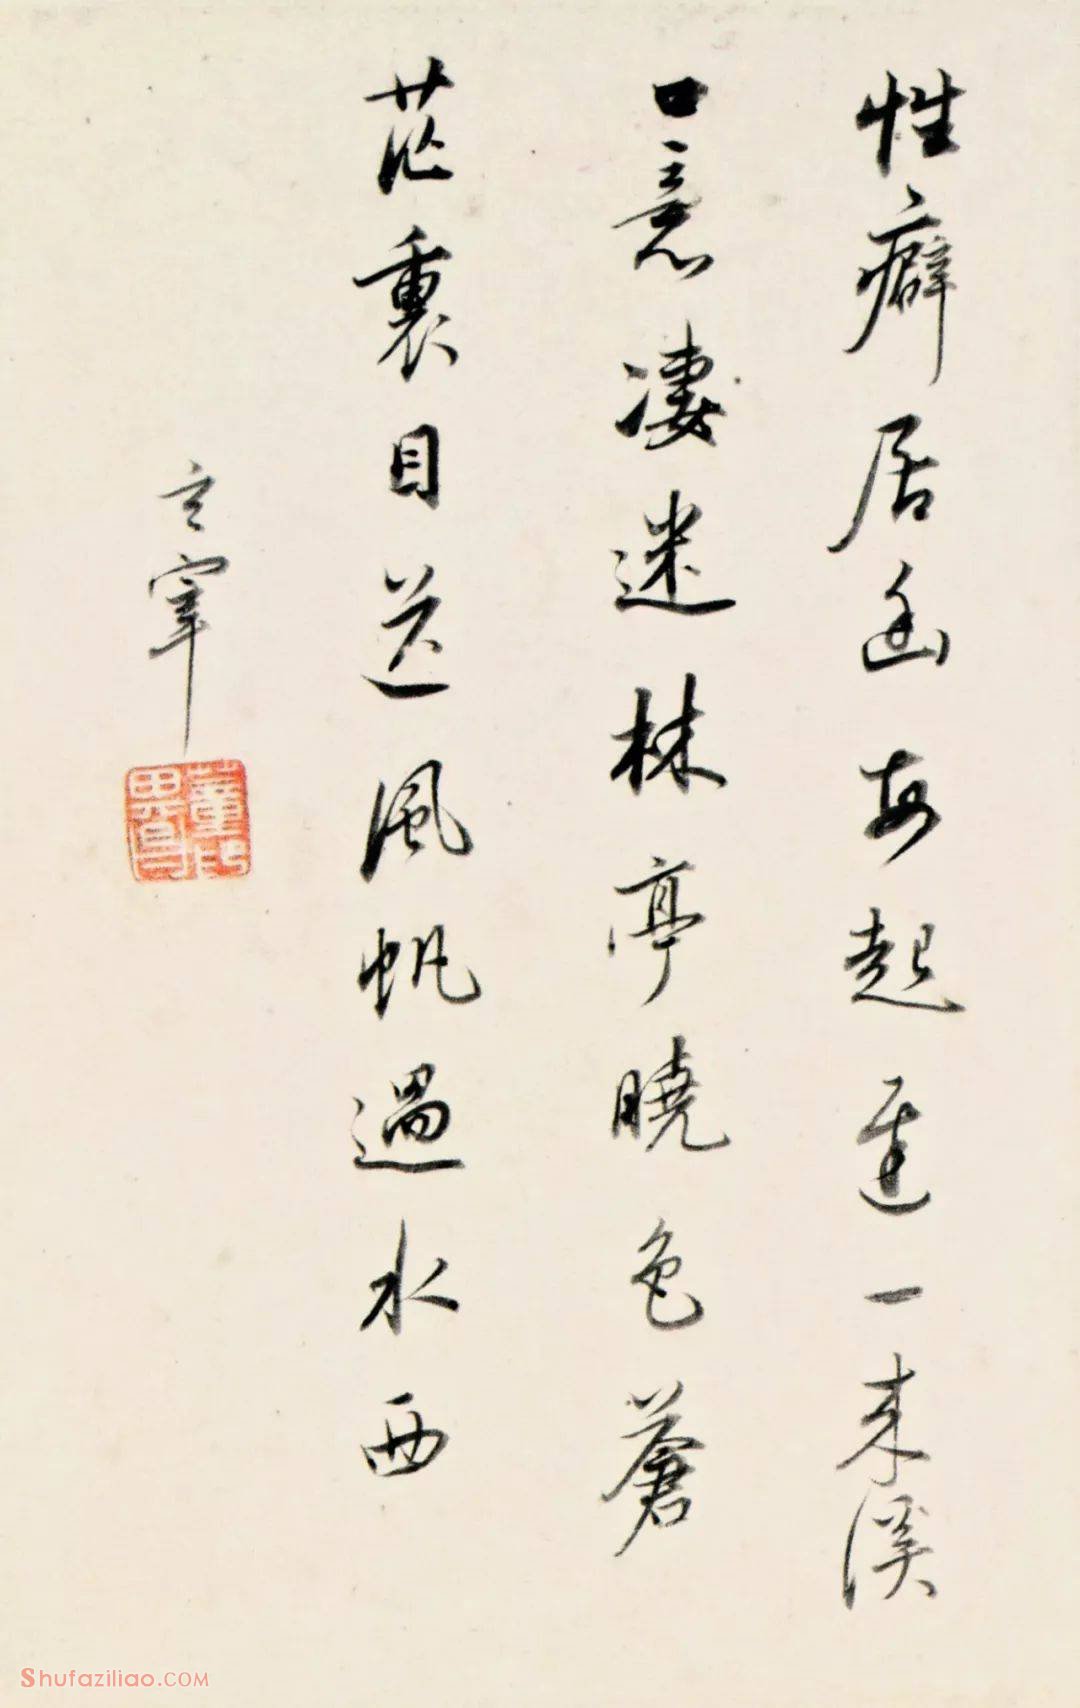 性癖居幽每起遲一來溪
口意凄迷林亭曉色蒼
茫裏目送風帆過水西
玄宰
董其昌印
Shufaziliao.com